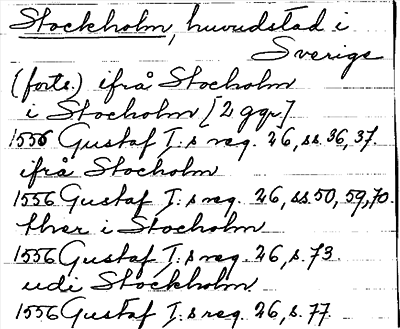 Stockholm, huvudstad i
Sverige
(forts.) ifrå Stocholm
i Stocholm [2 ggr.]
1556 Gustaf I:s reg. 26, ss. 36, 37.
ifrå Stocholm
1556 Gustaf I:s reg. 26, ss. 50, 59, 70.
ther i Stocholm
1556 Gustaf I:s reg. 26, s. 73.
udi Stockholm
1556 Gustaf I:s reg. 26, s. 77.